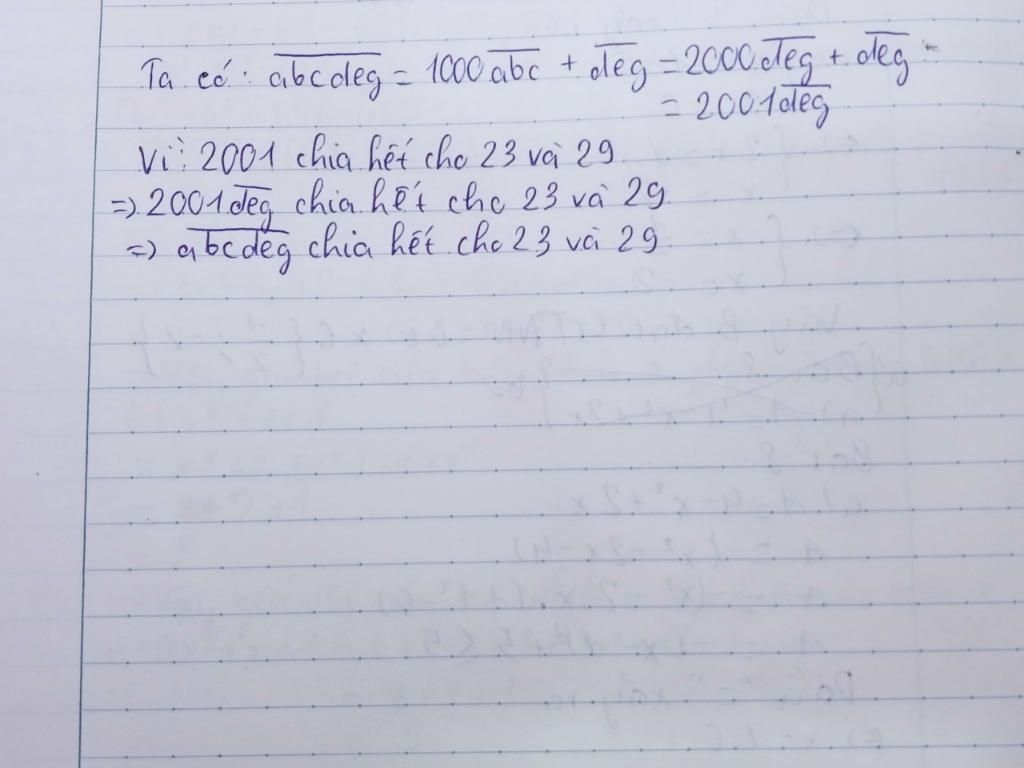 Ta có: abcdeg = 1000 abc + deg = 2000 deg + deg
= 2001 deg
Vì: 2001 chia hết cho 23 và 29.
=> 2001.deg chia hết cho 23 và 29.
=> abcdeg chia hết cho 23 và 29.